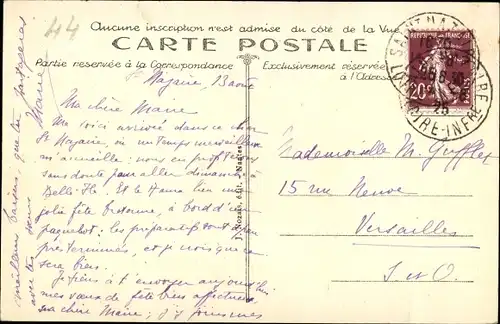 44
Aucune inscription n'est admise du côté de la Vue
CARTE POSTALE
Partie réservée à la Correspondance
Exclusivement réservée à l'Adresse
RÉPUBLIQUE FRANÇAISE
20
SAINT NAZAIRE
LOIRE-INFRE
25
St Nazaire, 13 août
Ma chère Marie
Me voici arrivée dans ce cher
St Nazaire, où un temps merveilleux
m'accueille: nous en profiterons
sans doute pour aller dimanche à
Belle Ile. Et le Havre
jolie fête bretonne, à bord d'un
paquebot: les préparatifs sont à peu
près terminés, et je crois que ce
sera bien.
Je tiens à t'envoyer aujourd'hui
mes vœux de fête bien affectueux
ma chère Marie; j'y joins mes
meilleurs baisers, que tu partageras
avec tes
Marie
J. Nozais, édit. Nantes
Mademoiselle M. Guffflet
15 rue Neuve
Versailles
S. et O.